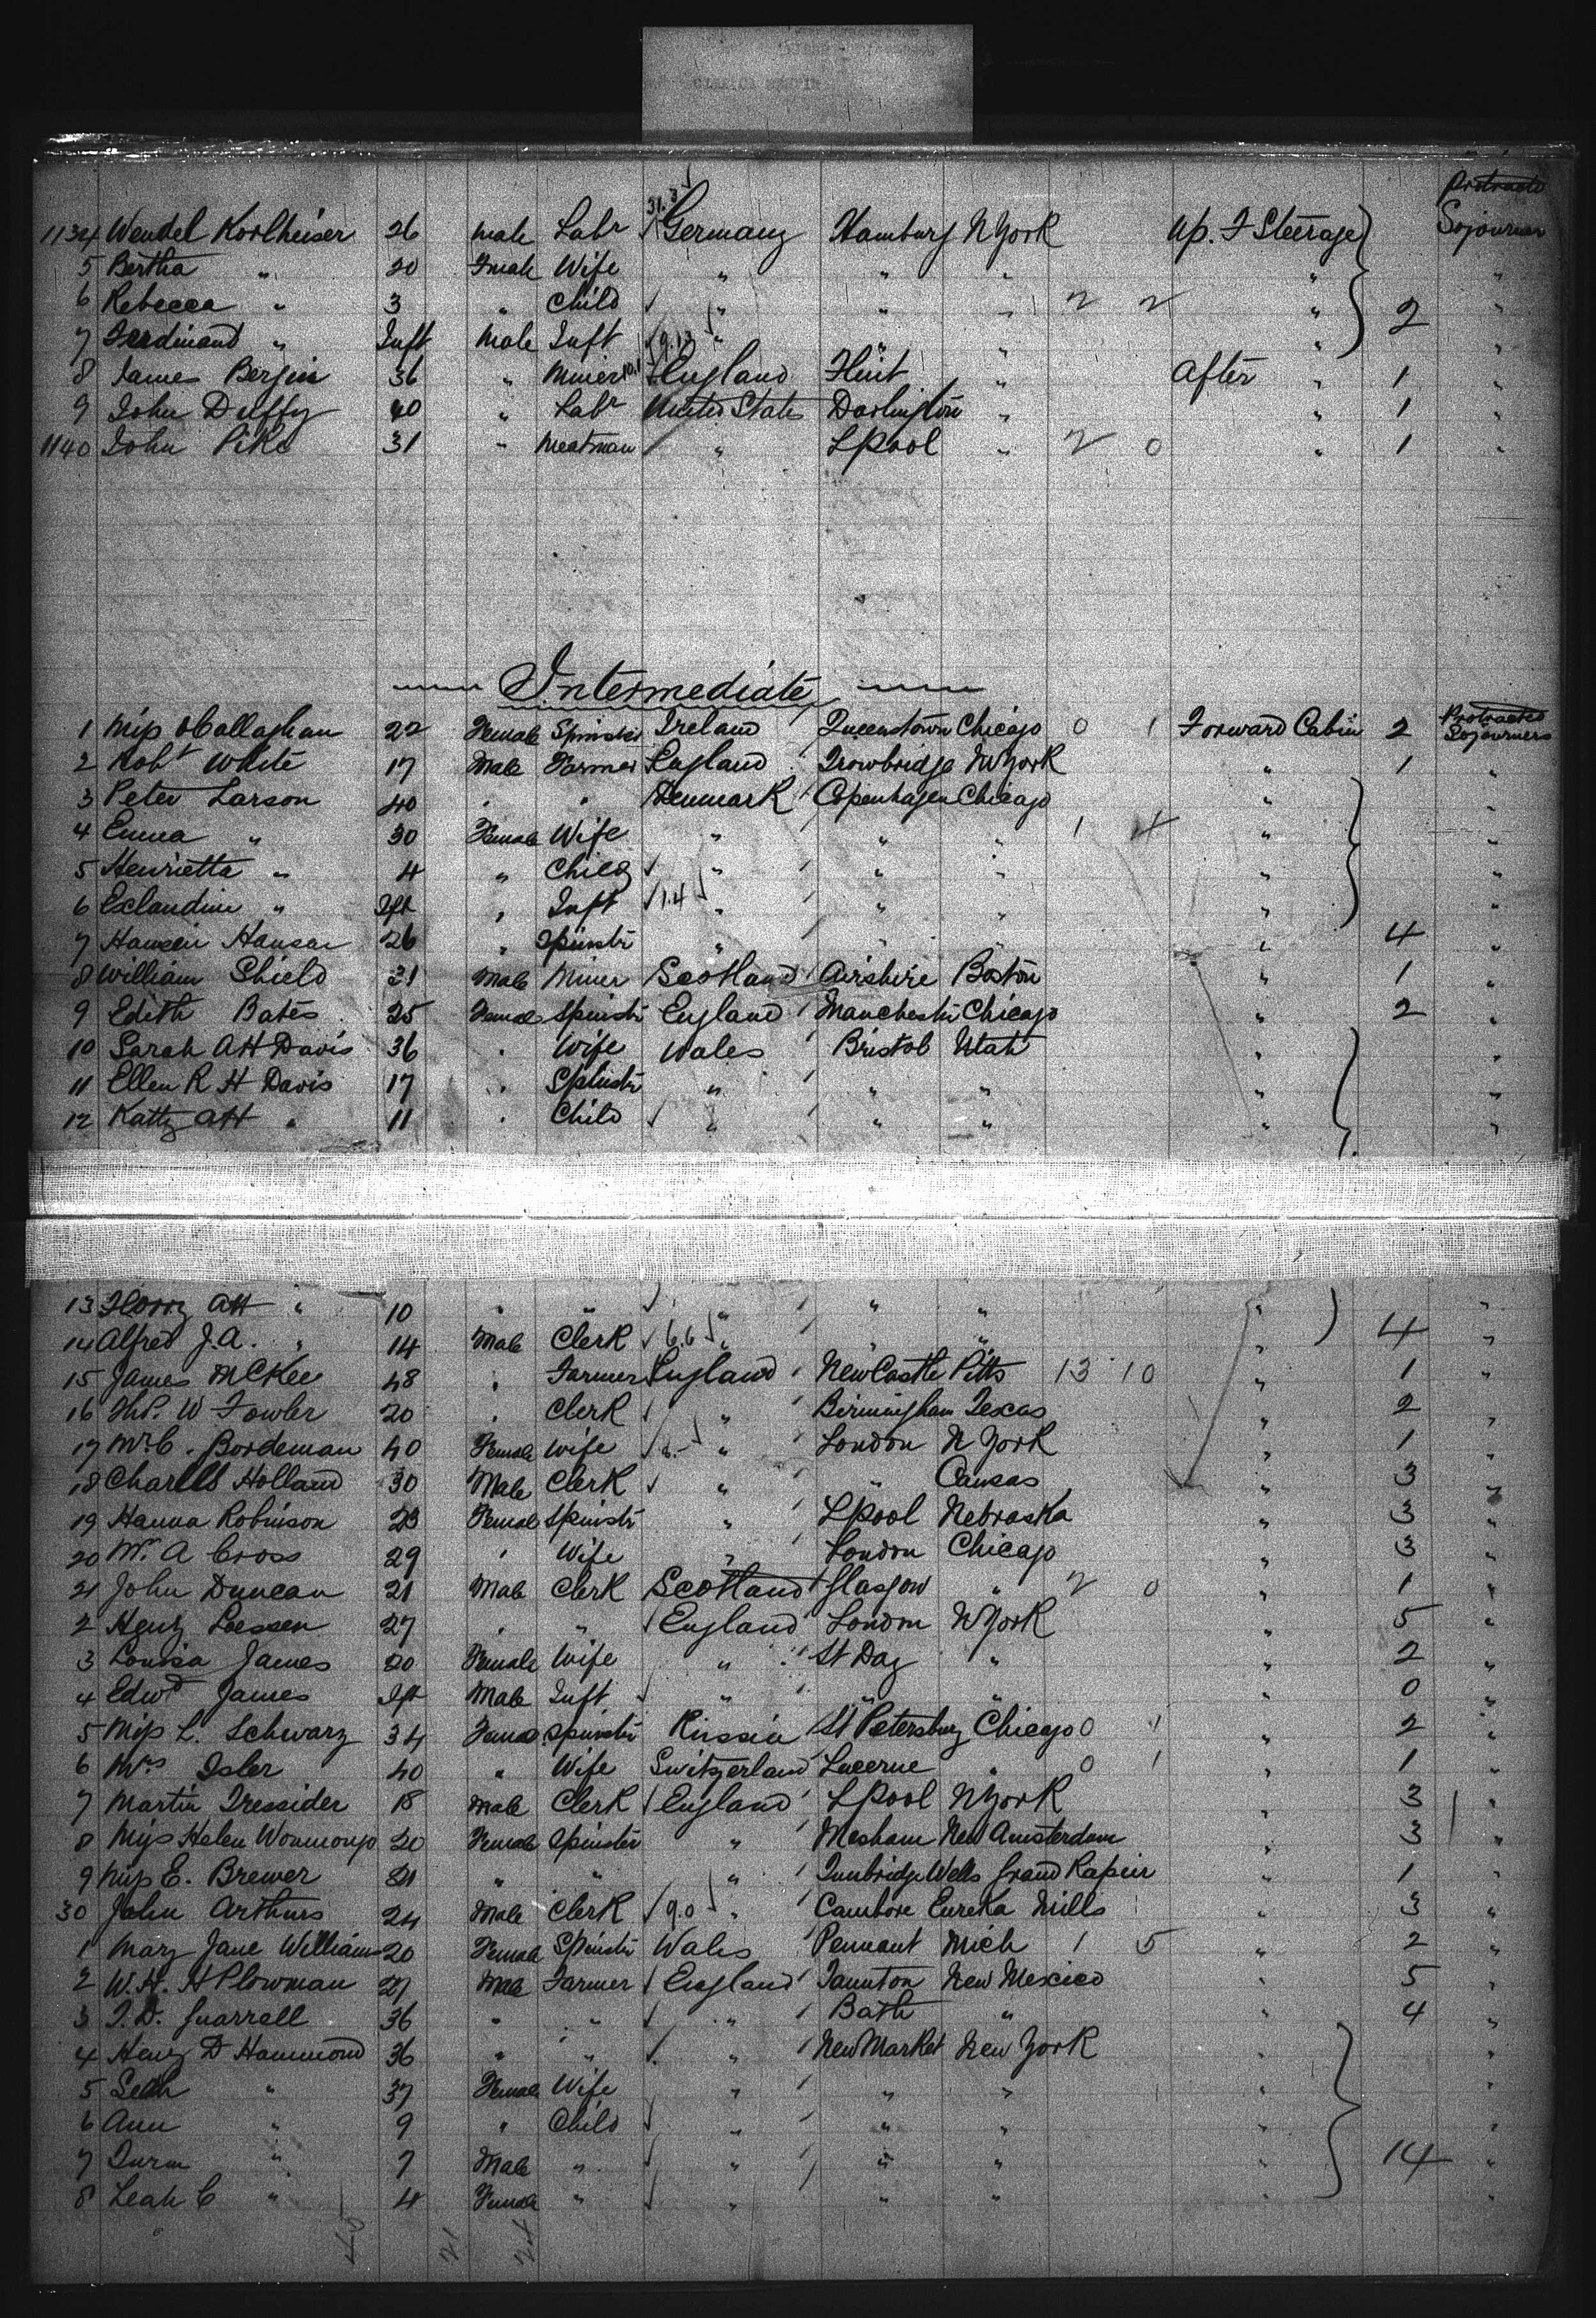 Protracted
31.3
1134 Wendel Korlheiser 26 Male Labr Germany Hamburg N York Up. F Steerage Sojourner
5 Bertha " 20 Fmale Wife " " " " "
6 Rebecca " 3 " Child " " " 2 2 " 2 "
7 Ferdinand " Inft Male Inft 9.13 " " " " "
8 James Bergin 36 " Miner 10.1 England Flint " After " 1 "
9 John Duffy 40 " Labr United States Darlington " " 1 "
1140 John Pike 31 " Meatman " Lpool " 2 0 " 1 "
Intermediate
1 Miss O'Callaghan 22 Female Spinster Ireland Queenstown Chicago 0 1 Forward Cabin 2 Protracted Sojourners
2 Robt White 17 Male Farmer England Trowbridge N York " 1 "
3 Peter Larson 40 " " Denmark Copenhagen Chicago " "
4 Emma " 30 Female Wife " " " 1 4 " "
5 Henrietta " 4 " Child " " " " "
6 " Ift " Inft 1.4 " " " " "
7 Hansen 26 " Spinstr " " " " 4 "
8 William Shield 21 Male Miner Scotland Airshire Boston " 1 "
9 Edith Bates 25 Female Spinstr England Manchester Chicago " 2 "
10 Sarah A H Davis 36 " Wife Wales Bristol Utah " "
11 Ellen R H Davis 17 " Spinstr " " " " "
12 Katty A H " 11 " Child " " " " "
13 Florry A H " 10 " " " " " " "
14 Alfred J. A. " 14 Male Clerk 6.6 " " " " 4 "
15 James McKee 48 " Farmer England New Castle Pitts 13 10 " 1 "
16 Thos. W Fowler 20 " Clerk " Birmingham Texas " 2 "
17 Mrs C. Bordeman 40 Female Wife " London N York " 1 "
18 Charles Holland 30 Male Clerk " " Cansas " 3 "
19 Hanna Robinson 23 Female Spinstr " Lpool Nebraska " 3 "
20 Mrs A Cross 29 " Wife " London Chicago " 3 "
21 John Duncan 21 Male Clerk Scotland Glasgow " 2 0 " 1 "
2 Henry Loessen 27 " " England London N York " 5 "
3 Louisa James 20 Female Wife " St Day " " 2 "
4 Edwd James Ift Male Inft " " " " 0 "
5 Miss L. Schwarz 34 Female Spinstr Russia St Petersburg Chicago 0 1 " 2 "
6 Mrs Isler 40 " Wife Switzerland Lucerne " 0 1 " 1 "
7 Martin Tressider 18 Male Clerk England Lpool N York " 3 "
8 Miss Helen 20 Female Spinster " Mesham New Amsterdam " 3 "
9 Miss E. Brewer 21 " " " Tunbridge Wells Grand " 1 "
30 John Arthurs 24 Male Clerk 9.0 " Cambore Eureka Mills " 3 "
1 Mary Jane Williams 20 Female Spinstr Wales Pennant Mich 1 5 " 2 "
2 W. H. H Plowman 27 Male Farmer England Taunton New Mexico " 5 "
3 T. D. Quarrell 36 " " " Bath " " 4 "
4 Henry D Hammond 36 " " " New Market New York " "
5 " 37 Female Wife " " " " "
6 Ann " 9 " Child " " " " "
7 " 7 Male " " " " " 14 "
8 Leah C " 4 Female " " " " " "
45 21 24